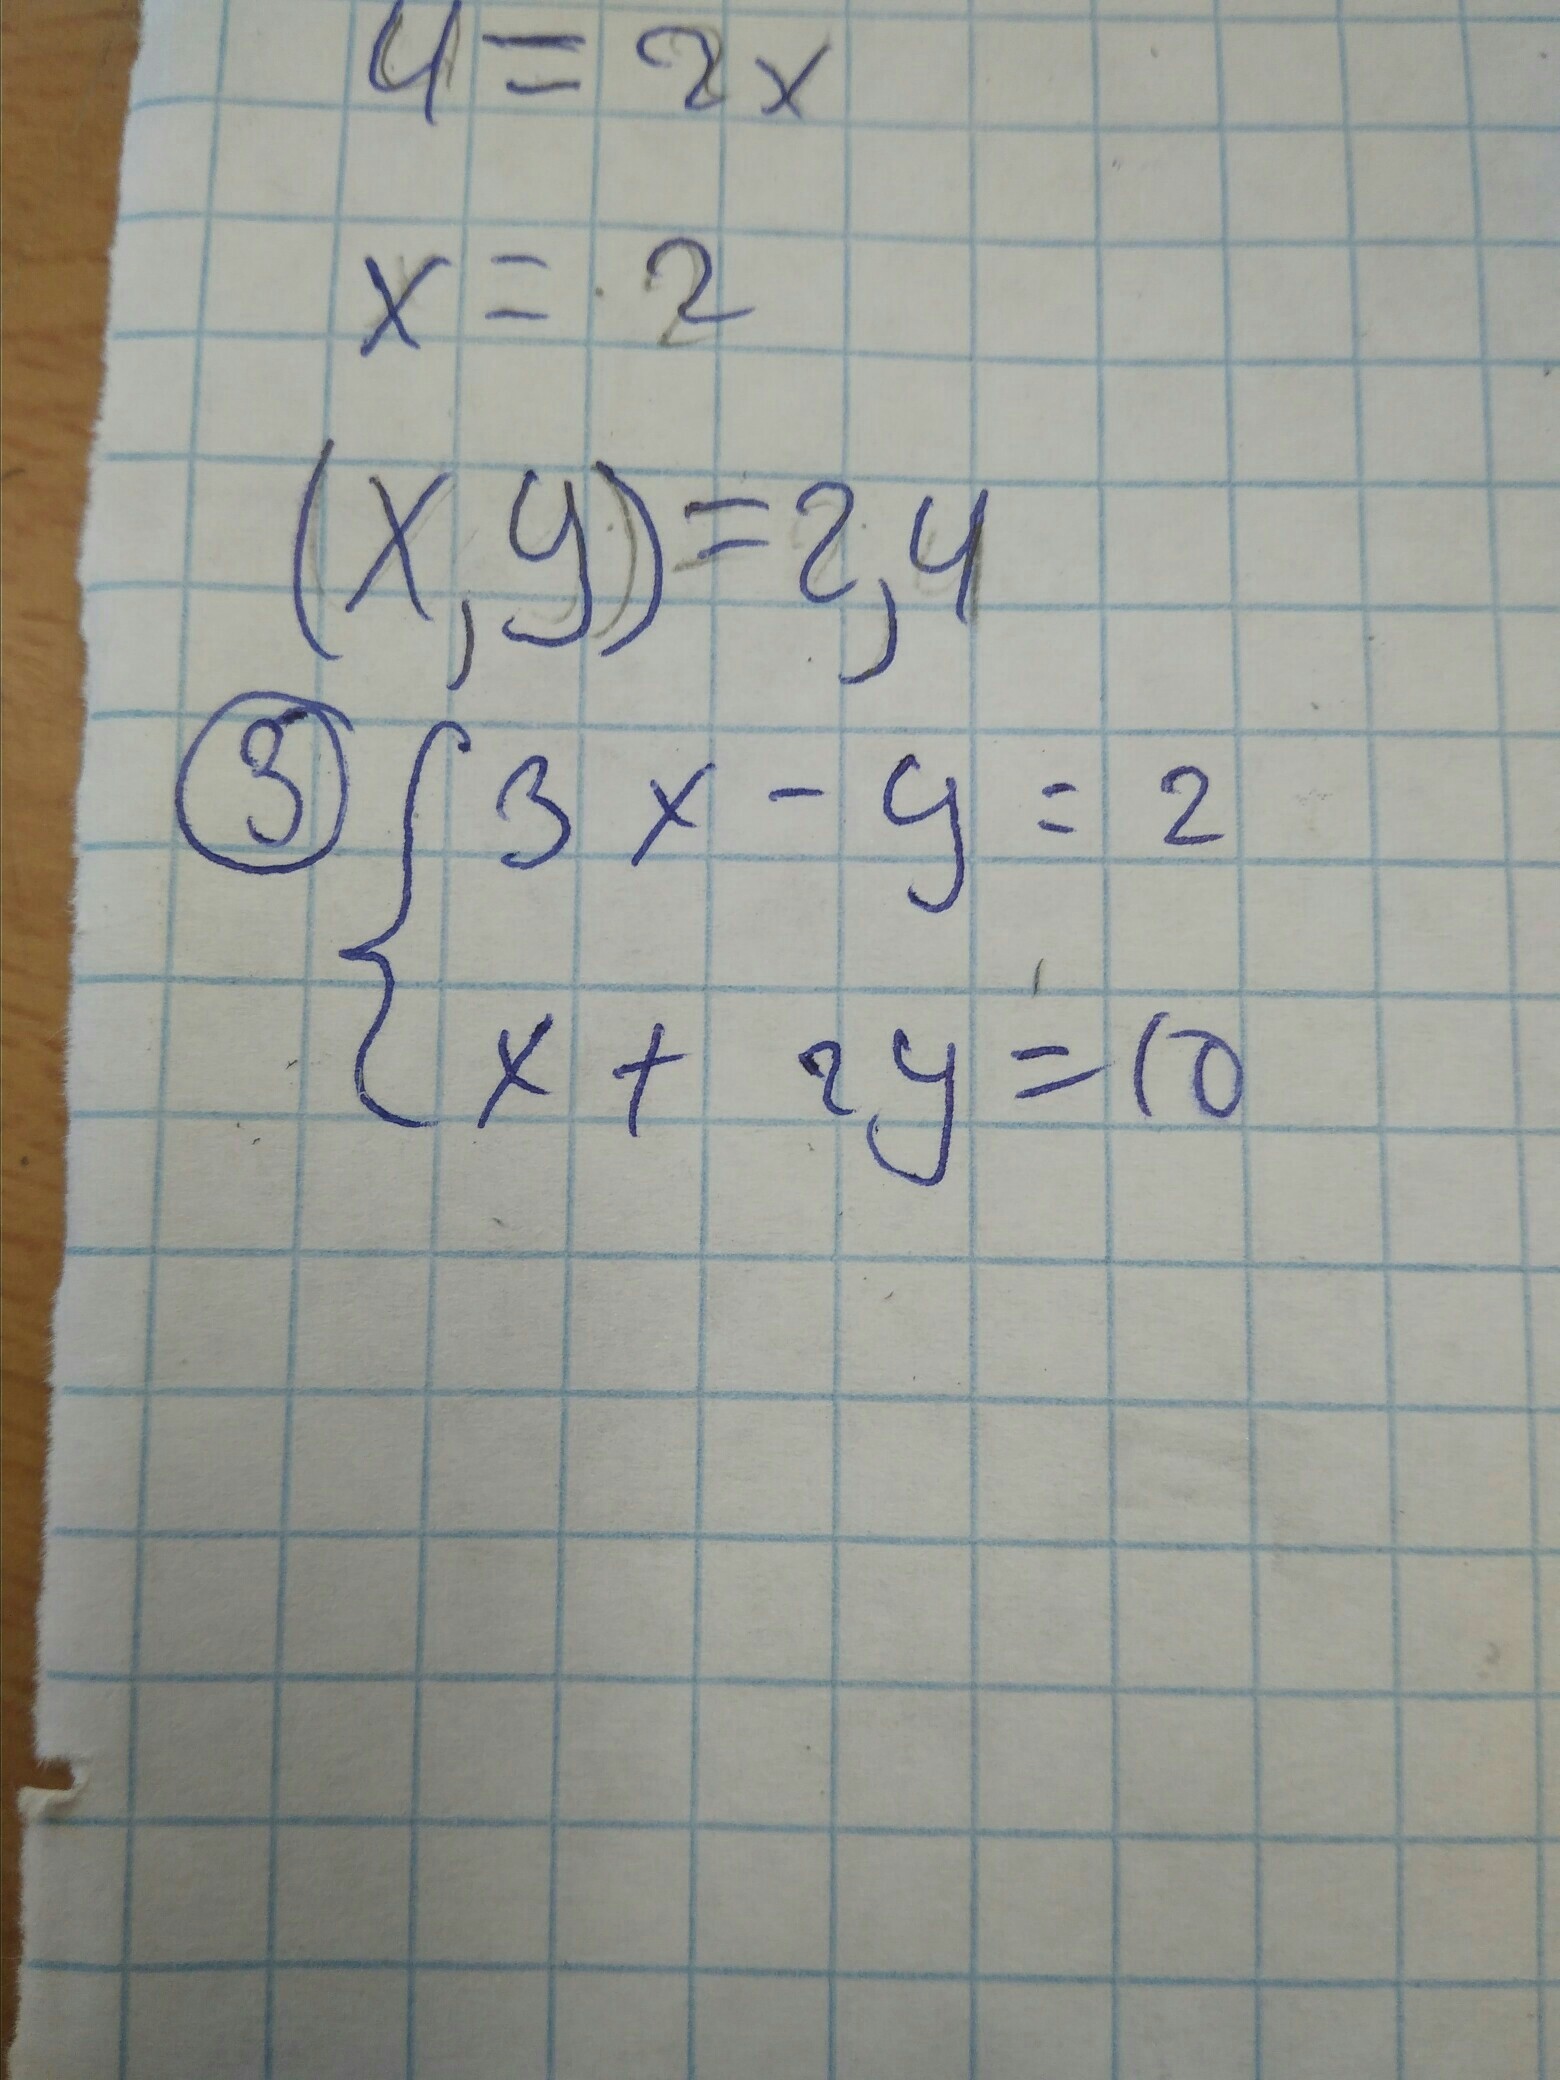 4 = 2x
x = 2
(x, y) = 2, 4
3 { 3x - y = 2
x + 2y = 10